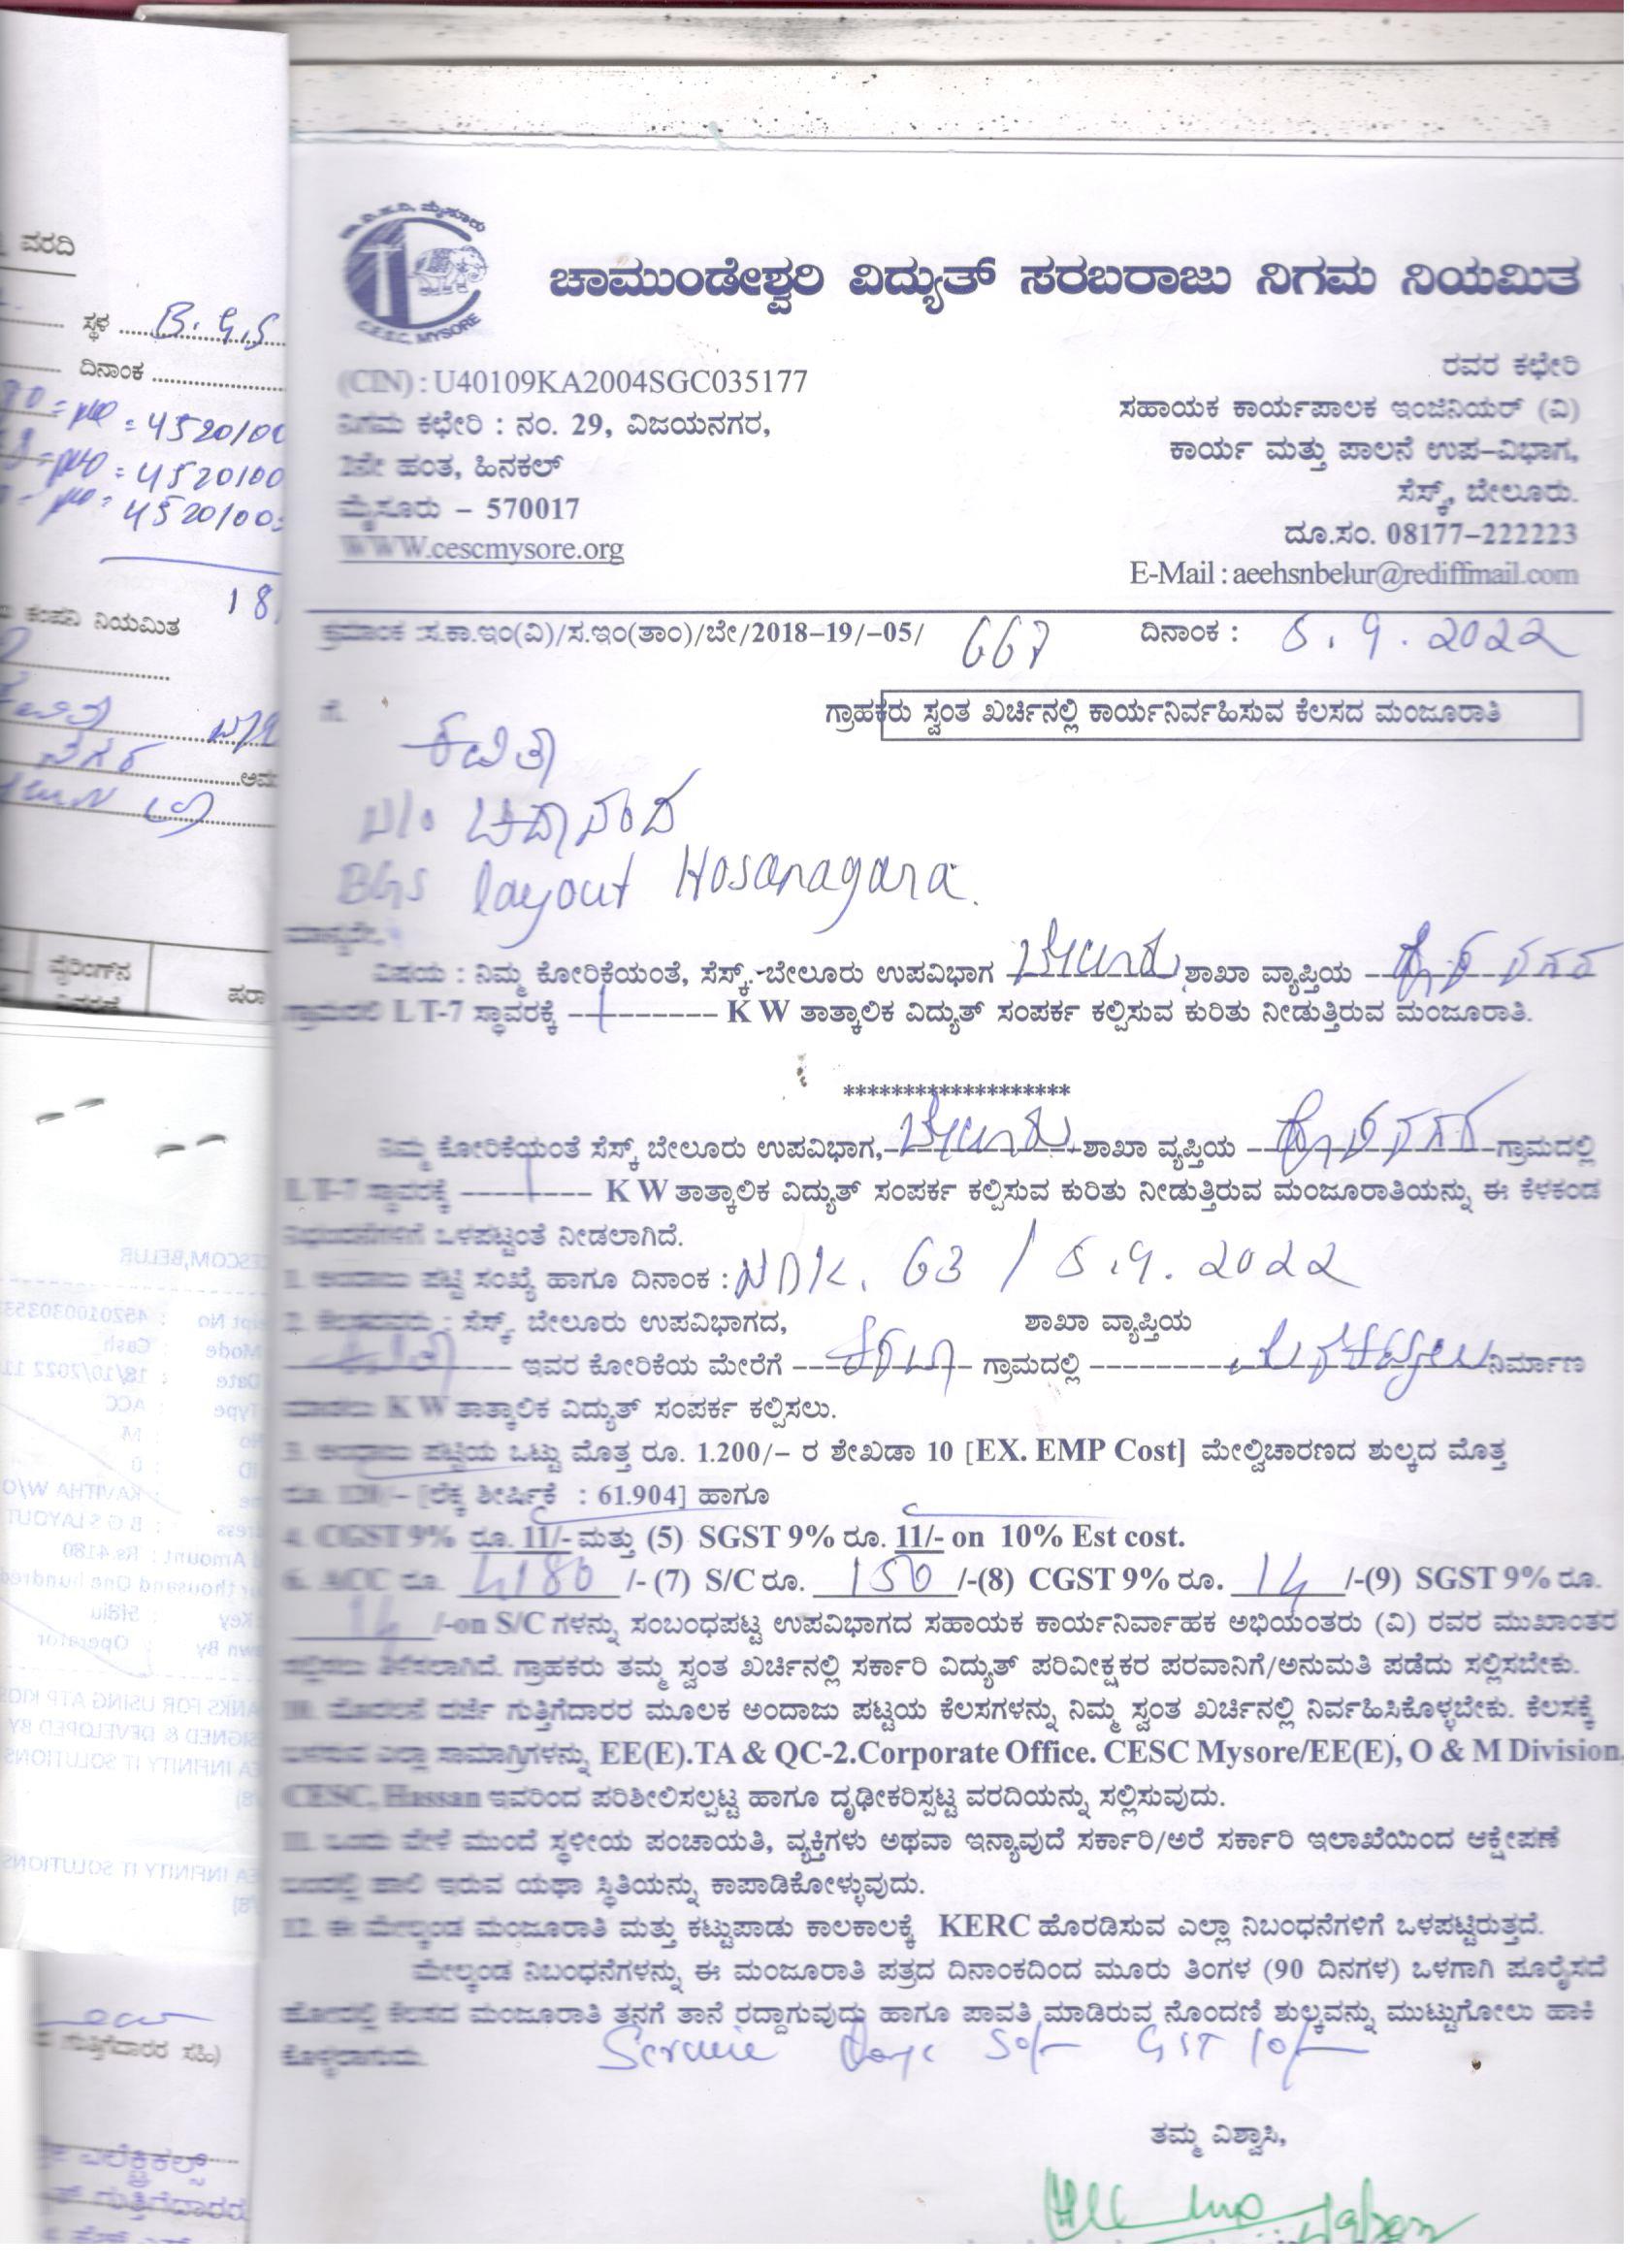 ವರದಿ
ಸ್ಥಳ B.G.S
ದಿನಾಂಕ
= 4520100
= 4520100
4520100
18
ಕಂಪನಿ ನಿಯಮಿತ
ನಗರ
ವೈರಿಂಗ್‌ನ
ಪರಾ
CESCOM,BELUR
Mode : Cash
18/10/2022 11
Type : ACC
: M
: 0
: KAVITHA W/O
: B G S LAYOUT
Amount : Rs.4180
: Operator
ANKS FOR USING ATP KIOS
SIGNED & DEVELOPED BY
EA INFINITY IT SOLUTIONS
EA INFINITY IT SOLUTIONS
ಗುತ್ತಿಗೆದಾರರ ಸಹಿ)
ಎಲೆಕ್ಟ್ರಿಕಲ್ಸ್
ಗುತ್ತಿಗೆದಾರರು
C.E.S.C. MYSORE
ಚಾಮುಂಡೇಶ್ವರಿ ವಿದ್ಯುತ್ ಸರಬರಾಜು ನಿಗಮ ನಿಯಮಿತ
(CIN) : U40109KA2004SGC035177
ನಿಗಮ ಕಛೇರಿ : ನಂ. 29, ವಿಜಯನಗರ,
2ನೇ ಹಂತ, ಹಿನಕಲ್
ಮೈಸೂರು – 570017
WWW.cescmysore.org
ರವರ ಕಛೇರಿ
ಸಹಾಯಕ ಕಾರ್ಯಪಾಲಕ ಇಂಜಿನಿಯರ್ (ವಿ)
ಕಾರ್ಯ ಮತ್ತು ಪಾಲನೆ ಉಪ–ವಿಭಾಗ,
ಸೆಸ್ಕ್, ಬೇಲೂರು.
ದೂ.ಸಂ. 08177–222223
E-Mail : aeehsnbelur@rediffmail.com
ಕ್ರಮಾಂಕ :ಸ.ಕಾ.ಇಂ(ವಿ)/ಸ.ಇಂ(ತಾಂ)/ಬೇ/2018–19/–05/ 667 ದಿನಾಂಕ : 5.9.2022
ಗೆ.
ಗ್ರಾಹಕರು ಸ್ವಂತ ಖರ್ಚಿನಲ್ಲಿ ಕಾರ್ಯನಿರ್ವಹಿಸುವ ಕೆಲಸದ ಮಂಜೂರಾತಿ
ಕವಿತಾ
ಚಿದಾನಂದ
BGS layout Hosanagara.
ಮಾನ್ಯರೇ,
ವಿಷಯ : ನಿಮ್ಮ ಕೋರಿಕೆಯಂತೆ, ಸೆಸ್ಕ್, ಬೇಲೂರು ಉಪವಿಭಾಗ ಬೇಲೂರು ಶಾಖಾ ವ್ಯಾಪ್ತಿಯ ಹೊಸನಗರ
ಗ್ರಾಮದಲಿ LT-7 ಸ್ಥಾವರಕ್ಕೆ --1-------- K W ತಾತ್ಕಾಲಿಕ ವಿದ್ಯುತ್ ಸಂಪರ್ಕ ಕಲ್ಪಿಸುವ ಕುರಿತು ನೀಡುತ್ತಿರುವ ಮಂಜೂರಾತಿ.
*******************
ನಿಮ್ಮ ಕೋರಿಕೆಯಂತೆ ಸೆಸ್ಕ್ ಬೇಲೂರು ಉಪವಿಭಾಗ, ಬೇಲೂರು ಶಾಖಾ ವ್ಯಪ್ತಿಯ ಹೊಸನಗರ ಗ್ರಾಮದಲ್ಲಿ
LT-7 ಸ್ಥಾವರಕ್ಕೆ ----1----- K W ತಾತ್ಕಾಲಿಕ ವಿದ್ಯುತ್ ಸಂಪರ್ಕ ಕಲ್ಪಿಸುವ ಕುರಿತು ನೀಡುತ್ತಿರುವ ಮಂಜೂರಾತಿಯನ್ನು ಈ ಕೆಳಕಂಡ
ನಿಭಂದನೆಗಳಿಗೆ ಒಳಪಟ್ಟಂತೆ ನೀಡಲಾಗಿದೆ.
1. ಅಂದಾಜು ಪಟ್ಟಿ ಸಂಖ್ಯೆ ಹಾಗೂ ದಿನಾಂಕ : NDK. 63 / 5.9.2022
2. ಕೆಲಸದವರು : ಸೆಸ್ಕ್, ಬೇಲೂರು ಉಪವಿಭಾಗದ, ಶಾಖಾ ವ್ಯಾಪ್ತಿಯ
ಕವಿತಾ ಇವರ ಕೋರಿಕೆಯ ಮೇರೆಗೆ ಗ್ರಾಮದಲ್ಲಿ ನಿರ್ಮಾಣ
ಮಾಡಲು K W ತಾತ್ಕಾಲಿಕ ವಿದ್ಯುತ್ ಸಂಪರ್ಕ ಕಲ್ಪಿಸಲು.
3. ಅಂದಾಜು ಪಟ್ಟಿಯ ಒಟ್ಟು ಮೊತ್ತ ರೂ. 1.200/– ರ ಶೇಖಡಾ 10 [EX. EMP Cost] ಮೇಲ್ವಿಚಾರಣದ ಶುಲ್ಕದ ಮೊತ್ತ
ರೂ. 120/– [ಲೆಕ್ಕ ಶೀರ್ಷಿಕೆ : 61.904] ಹಾಗೂ
4. CGST 9% ರೂ. 11/- ಮತ್ತು (5) SGST 9% ರೂ. 11/- on 10% Est cost.
6. ACC ರೂ. 4180 /- (7) S/C ರೂ. 150 /-(8) CGST 9% ರೂ. 14 /-(9) SGST 9% ರೂ.
14 /-on S/C ಗಳನ್ನು ಸಂಬಂಧಪಟ್ಟ ಉಪವಿಭಾಗದ ಸಹಾಯಕ ಕಾರ್ಯನಿರ್ವಾಹಕ ಅಭಿಯಂತರು (ವಿ) ರವರ ಮುಖಾಂತರ
ಸಲ್ಲಿಸಲು ತಿಳಿಸಲಾಗಿದೆ. ಗ್ರಾಹಕರು ತಮ್ಮ ಸ್ವಂತ ಖರ್ಚಿನಲ್ಲಿ ಸರ್ಕಾರಿ ವಿದ್ಯುತ್ ಪರಿವೀಕ್ಷಕರ ಪರವಾನಿಗೆ/ಅನುಮತಿ ಪಡೆದು ಸಲ್ಲಿಸಬೇಕು.
10. ಮೊದಲನೆ ದರ್ಜೆ ಗುತ್ತಿಗೆದಾರರ ಮೂಲಕ ಅಂದಾಜು ಪಟ್ಟಯ ಕೆಲಸಗಳನ್ನು ನಿಮ್ಮ ಸ್ವಂತ ಖರ್ಚಿನಲ್ಲಿ ನಿರ್ವಹಿಸಿಕೊಳ್ಳಬೇಕು. ಕೆಲಸಕ್ಕೆ
ಬಳಸುವ ಎಲ್ಲಾ ಸಾಮಾಗ್ರಿಗಳನ್ನು EE(E).TA & QC-2.Corporate Office. CESC Mysore/EE(E), O & M Division,
CESC, Hassan ಇವರಿಂದ ಪರಿಶೀಲಿಸಲ್ಪಟ್ಟ ಹಾಗೂ ದೃಢೀಕರಿಸ್ಪಟ್ಟ ವರದಿಯನ್ನು ಸಲ್ಲಿಸುವುದು.
11. ಒಂದು ವೇಳೆ ಮುಂದೆ ಸ್ಥಳೀಯ ಪಂಚಾಯತಿ, ವ್ಯಕ್ತಿಗಳು ಅಥವಾ ಇನ್ಯಾವುದೆ ಸರ್ಕಾರಿ/ಅರೆ ಸರ್ಕಾರಿ ಇಲಾಖೆಯಿಂದ ಆಕ್ಷೇಪಣೆ
ಬಂದಲ್ಲಿ ಹಾಲಿ ಇರುವ ಯಥಾ ಸ್ಥಿತಿಯನ್ನು ಕಾಪಾಡಿಕೋಳ್ಳುವುದು.
12. ಈ ಮೇಲ್ಕಂಡ ಮಂಜೂರಾತಿ ಮತ್ತು ಕಟ್ಟುಪಾಡು ಕಾಲಕಾಲಕ್ಕೆ KERC ಹೊರಡಿಸುವ ಎಲ್ಲಾ ನಿಬಂಧನೆಗಳಿಗೆ ಒಳಪಟ್ಟಿರುತ್ತದೆ.
ಮೇಲ್ಕಂಡ ನಿಬಂಧನೆಗಳನ್ನು ಈ ಮಂಜೂರಾತಿ ಪತ್ರದ ದಿನಾಂಕದಿಂದ ಮೂರು ತಿಂಗಳ (90 ದಿನಗಳ) ಒಳಗಾಗಿ ಪೂರೈಸದೆ
ಹೋದಲ್ಲಿ ಕೆಲಸದ ಮಂಜೂರಾತಿ ತನಗೆ ತಾನೆ ರದ್ದಾಗುವುದು ಹಾಗೂ ಪಾವತಿ ಮಾಡಿರುವ ನೊಂದಣಿ ಶುಲ್ಕವನ್ನು ಮುಟ್ಟುಗೋಲು ಹಾಕಿ
ಕೊಳ್ಳಲಾಗುದು.
50/- GST 10/-
ತಮ್ಮ ವಿಶ್ವಾಸಿ,